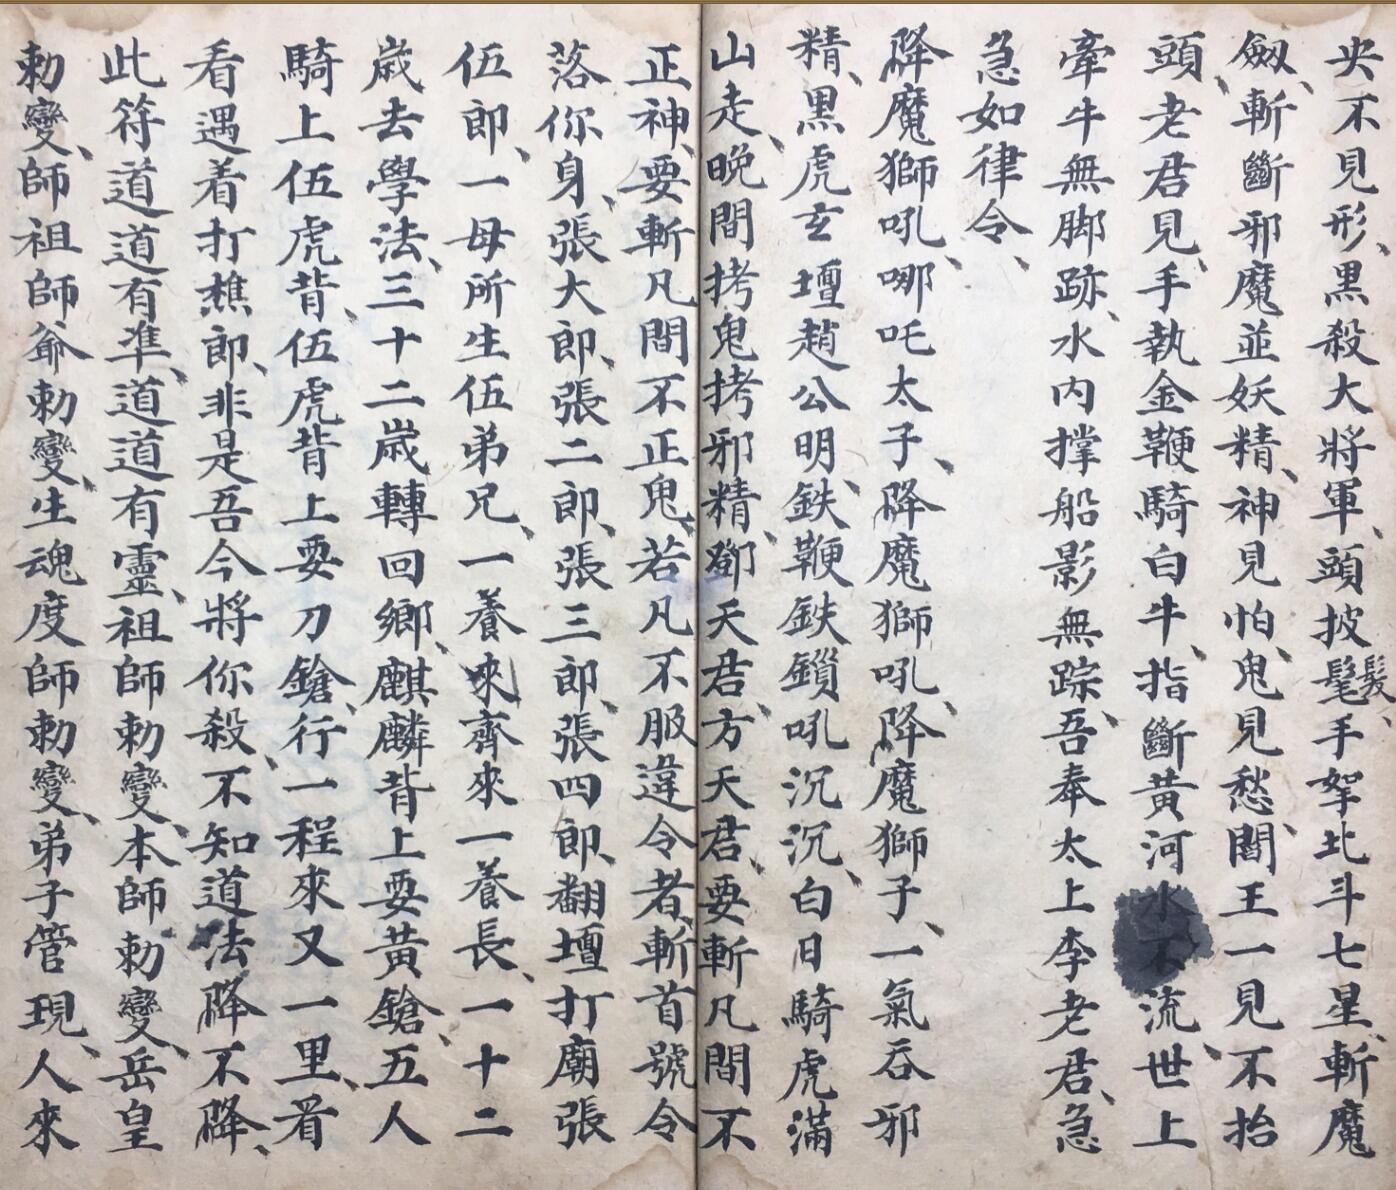 央不見形、黑殺大將軍、頭披髦髮、手拏北斗七星、斬魔
劔、斬斷邪魔並妖精、神見怕、鬼見愁、閻王一見不抬
頭、老君見、手執金鞭騎白牛、指斷黃河水不流、世上
牽牛無脚跡、水內撑船影無踪、吾奉太上李老君、急
急如律令、
降魔獅吼、哪吒太子、降魔獅吼、降魔獅子、一氣吞邪
精、黑虎玄壇趙公明、鉄鞭鉄鎖吼沉沉、白日騎虎滿
山走、晚間拷鬼拷邪精、鄧天君、方天君、要斬凡間不
正神、要斬凡間不正鬼、若凡不服違令者、斬首號令
落你身、張大郎、張二郎、張三郎、張四郎、翻壇打廟張
伍郎、一母所生伍弟兄、一養來齊來一養長、一十二
歲去學法、三十二歲轉回鄉、麒麟背上要黃鎗、五人
騎上伍虎背、伍虎背上要刀鎗、行一程來又一里、看
看遇着打樵郎、非是吾今將你殺、不知道法降不降、
此符道道有準、道道有靈、祖師勅變、本師勅變、岳皇
勅變、師祖師爺勅變、生魂度師勅變、弟子管現、人來